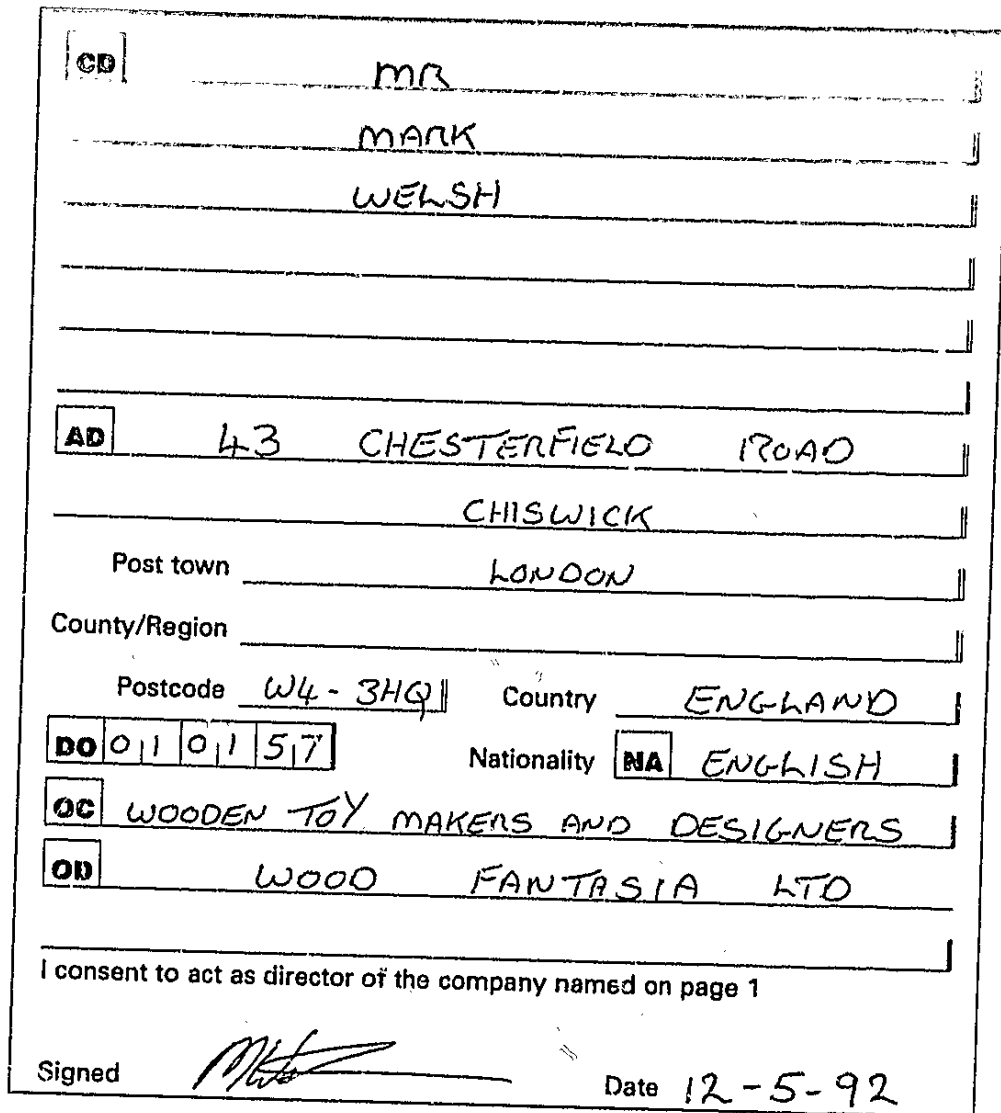 CD MR
MARK
WELSH
AD 43 CHESTERFIELD ROAD
CHISWICK
Post town LONDON
County/Region
Postcode W4-3HQ Country ENGLAND
DO 01 01 57 Nationality NA ENGLISH
OC WOODEN TOY MAKERS AND DESIGNERS
OD WOOD FANTASIA LTD
I consent to act as director of the company named on page 1
Signed Date 12-5-92